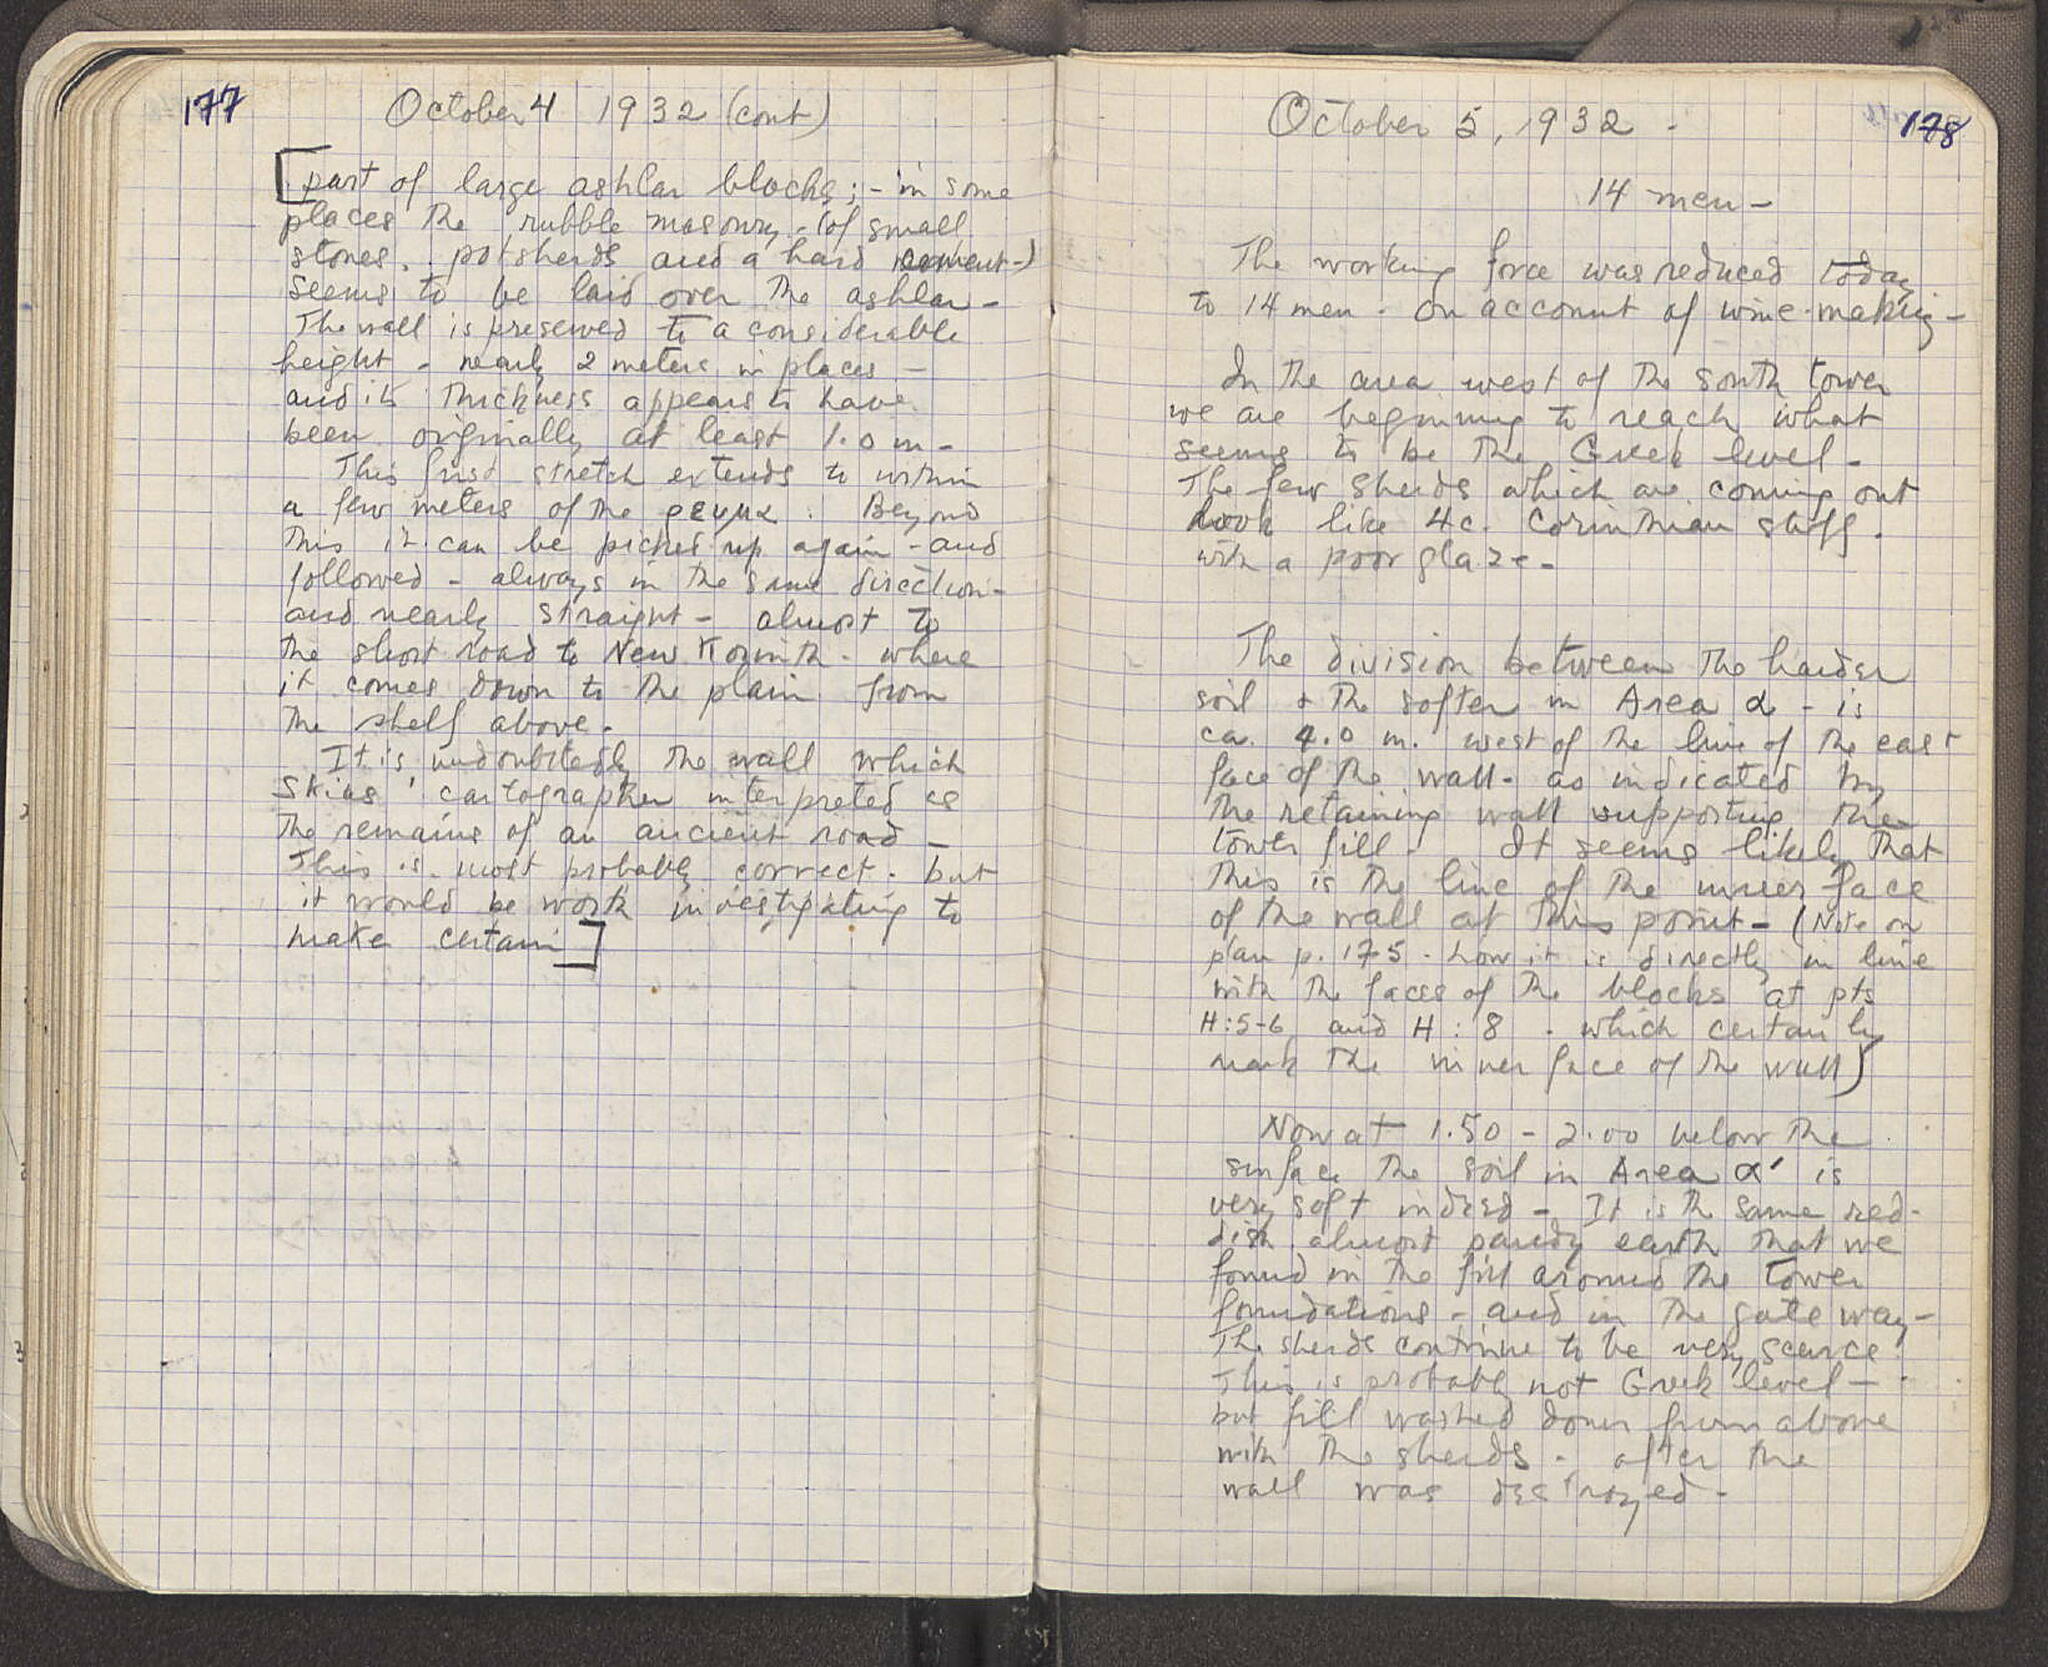 177
October 4 1932 (cont)
[part of large ashlar blocks; - in some
places the rubble masonry - (of small
stones, potsherds and a hard cement -)
seems to be laid over the ashlar -
The wall is preserved to a considerable
height - nearly 2 meters in places -
and its thickness appears to have
been originally at least 1.0 m -
This first stretch extends to within
a few meters of the ρευμα. Beyond
this it can be picked up again - and
followed - always in the same direction -
and nearly straight - almost to
the short road to New Korinth - where
it comes down to the plain from
the shelf above.
It is undoubtedly the wall which
Skias' cartographer interpreted as
the remains of an ancient road -
This is most probably correct - but
it would be worth investigating to
make certain]
178
October 5, 1932 -
14 men -
The working force was reduced today
to 14 men - on account of wine-making -
In the area west of the south tower
we are beginning to reach what
seems to be the Greek level -
The few sherds which are coming out
look like 4c. Corinthian stuff -
with a poor glaze -
The division between the harder
soil + the softer in Area α - is
ca. 4.0 m. west of the line of the east
face of the wall - as indicated by
the retaining wall supporting the
tower fill - It seems likely that
this is the line of the inner face
of the wall at this point - (Note on
plan p. 175 - how it is directly in line
with the faces of the blocks at pts
H:5-6 and H:8 - which certainly
mark the inner face of the wall)
Now at 1.50 - 2.00 below the
surface the soil in Area α' is
very soft indeed - It is the same red-
dish almost sandy earth that we
found in the fill around the tower
foundations - and in the gate way -
The sherds continue to be very scarce.
This is probably not Greek level -
but fill washed down from above
with the sherds - after the
wall was destroyed -